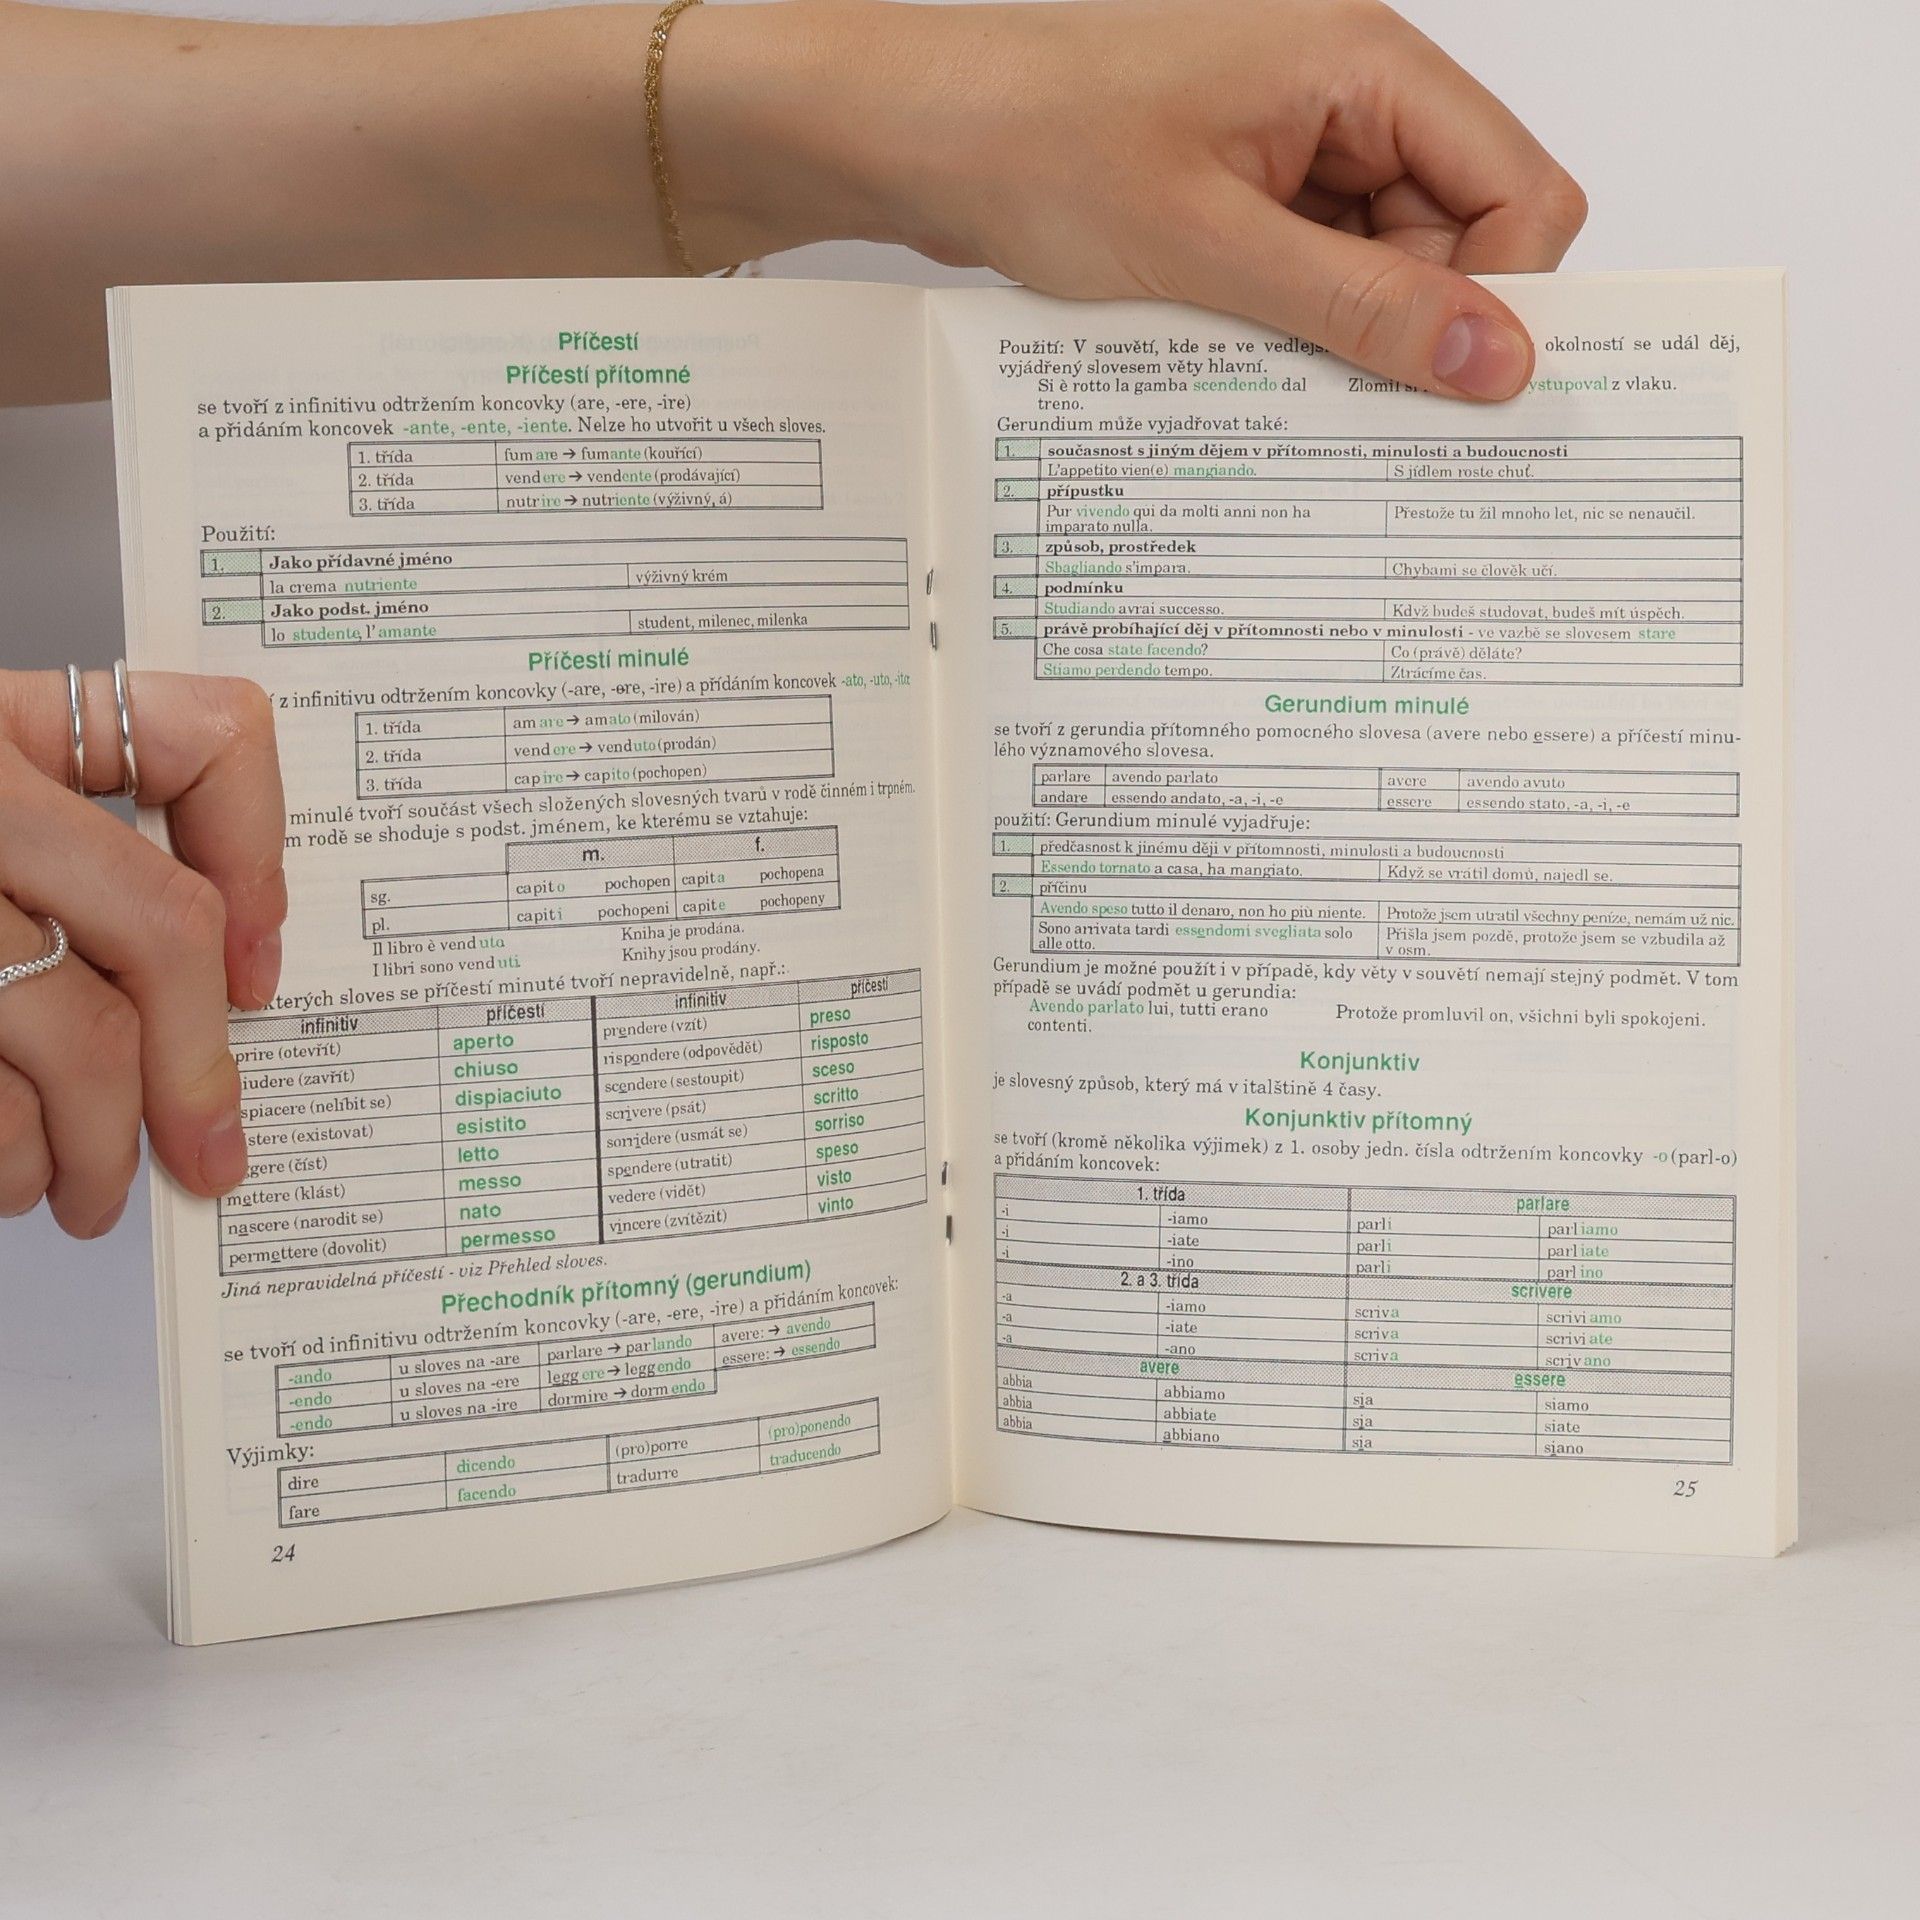 Příčestí
Příčestí přítomné
se tvoří z infinitivu odtržením koncovky (are, -ere, -ire)
a přidáním koncovek -ante, -ente, -iente. Nelze ho utvořit u všech sloves.
1. třída fumare → fumante (kouřící)
2. třída vendere → vendente (prodávající)
3. třída nutrire → nutriente (výživný, á)
Použití:
1. Jako přídavné jméno
la crema nutriente výživný krém
2. Jako podst. jméno
lo studente, l'amante student, milenec, milenka
Příčestí minulé
z infinitivu odtržením koncovky (-are, -ere, -ire) a přidáním koncovek -ato, -uto, -ito
1. třída amare → amato (milován)
2. třída vendere → venduto (prodán)
3. třída capire → capito (pochopen)
minulé tvoří součást všech složených slovesných tvarů v rodě činném i trpném.
m rodě se shoduje s podst. jménem, ke kterému se vztahuje:
m. f.
sg. capito pochopen capita pochopena
pl. capiti pochopeni capite pochopeny
Il libro è venduto Kniha je prodána.
I libri sono venduti Knihy jsou prodány.
kterých sloves se příčestí minuté tvoří nepravidelně, např.:
infinitiv příčestí infinitiv příčestí
prire (otevřít) aperto prendere (vzít) preso
iudere (zavřít) chiuso rispondere (odpovědět) risposto
spiacere (nelíbit se) dispiaciuto scendere (sestoupit) sceso
stere (existovat) esistito scrivere (psát) scritto
ggere (číst) letto sorridere (usmát se) sorriso
mettere (klást) messo spendere (utratit) speso
nascere (narodit se) nato vedere (vidět) visto
permettere (dovolit) permesso vincere (zvítězit) vinto
Jiná nepravidelná příčestí - viz Přehled sloves.
Přechodník přítomný (gerundium)
se tvoří od infinitivu odtržením koncovky (-are, -ere, -ire) a přidáním koncovek:
-ando u sloves na -are parlare → parlando avere: → avendo
-endo u sloves na -ere leggere → leggendo essere: → essendo
-endo u sloves na -ire dormire → dormendo
Výjimky:
dire dicendo (pro)porre (pro)ponendo
fare facendo tradurre traducendo
24
Použití: V souvětí, kde se ve vedlejš okolností se udál děj,
vyjádřený slovesem věty hlavní.
Si è rotto la gamba scendendo dal Zlomil ystupoval z vlaku.
treno.
Gerundium může vyjadřovat také:
1. současnost s jiným dějem v přítomnosti, minulosti a budoucnosti
L'appetito vien(e) mangiando. S jídlem roste chuť.
2. přípustku
Pur vivendo qui da molti anni non ha Přestože tu žil mnoho let, nic se nenaučil.
imparato nulla.
3. způsob, prostředek
Sbagliando s'impara. Chybami se člověk učí.
4. podmínku
Studiando avrai successo. Když budeš studovat, budeš mít úspěch.
5. právě probíhající děj v přítomnosti nebo v minulosti - ve vazbě se slovesem stare
Che cosa state facendo? Co (právě) děláte?
Stiamo perdendo tempo. Ztrácíme čas.
Gerundium minulé
se tvoří z gerundia přítomného pomocného slovesa (avere nebo essere) a příčestí minu-
lého významového slovesa.
parlare avendo parlato avere avendo avuto
andare essendo andato, -a, -i, -e essere essendo stato, -a, -i, -e
použití: Gerundium minulé vyjadřuje:
1. předčasnost k jinému ději v přítomnosti, minulosti a budoucnosti
Essendo tornato a casa, ha mangiato. Když se vrátil domů, najedl se.
2. příčinu
Avendo speso tutto il denaro, non ho più niente. Protože jsem utratil všechny peníze, nemám už nic.
Sono arrivata tardi essendomi svegliata solo Přišla jsem pozdě, protože jsem se vzbudila až
alle otto. v osm.
Gerundium je možné použít i v případě, kdy věty v souvětí nemají stejný podmět. V tom
případě se uvádí podmět u gerundia:
Avendo parlato lui, tutti erano Protože promluvil on, všichni byli spokojeni.
contenti.
Konjunktiv
je slovesný způsob, který má v italštině 4 časy.
Konjunktiv přítomný
se tvoří (kromě několika výjimek) z 1. osoby jedn. čísla odtržením koncovky -o (parl-o)
a přidáním koncovek:
1. třída parlare
-i -iamo parli parliamo
-i -iate parli parliate
-i -ino parli parlino
2. a 3. třída scrivere
-a -iamo scriva scriviamo
-a -iate scriva scriviate
-a -ano scriva scrivano
avere essere
abbia abbiamo sia siamo
abbia abbiate sia siate
abbia abbiano sia siano
25